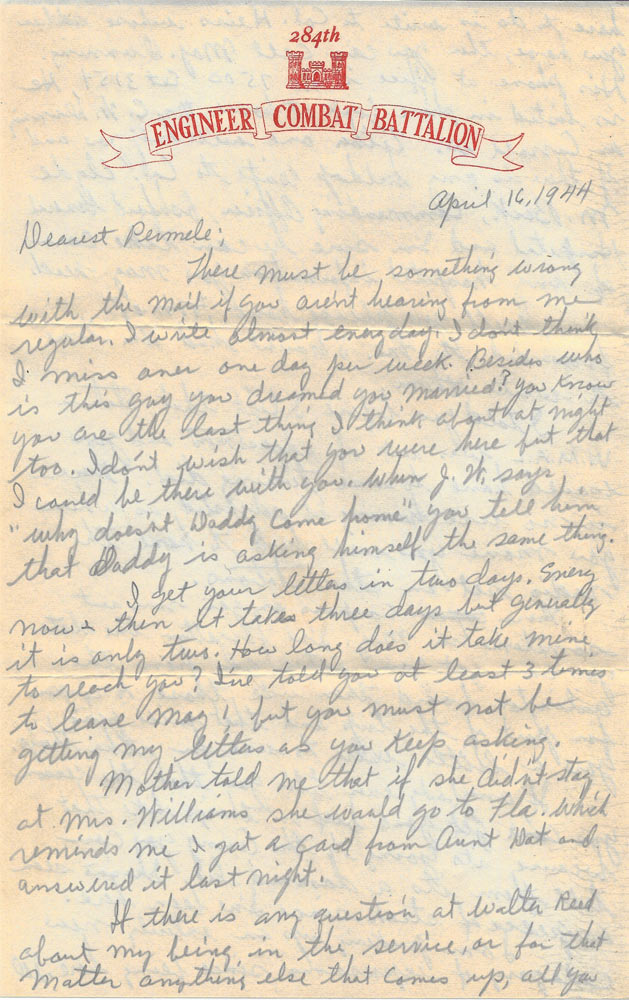 284th
ENGINEER COMBAT BATTALION
April 16, 1944
Dearest Permele;
There must be something wrong
with the mail if you aren't hearing from me
regular. I write almost everyday. I don't think
I miss over one day per week. Besides who
is this guy you dreamed you married? You know
you are the last thing I think about at night
too. I don't wish that you were here but that
I could be there with you. When J. W. says
"why doesn't Daddy come home" you tell him
that Daddy is asking himself the same thing.
I get your letters in two days. Every
now & then it takes three days but generally
it is only two. How long does it take mine
to reach you? I've told you at least 3 times
to leave May 1 but you must not be
getting my letters as you keep asking.
Mother told me that if she didn't stay
at Mrs. Williams she would go to Fla. which
reminds me I got a card from Aunt Dat and
answered it last night.
If there is any question at Walter Reed
about my being in the service, or for that
matter anything else that comes up, all you